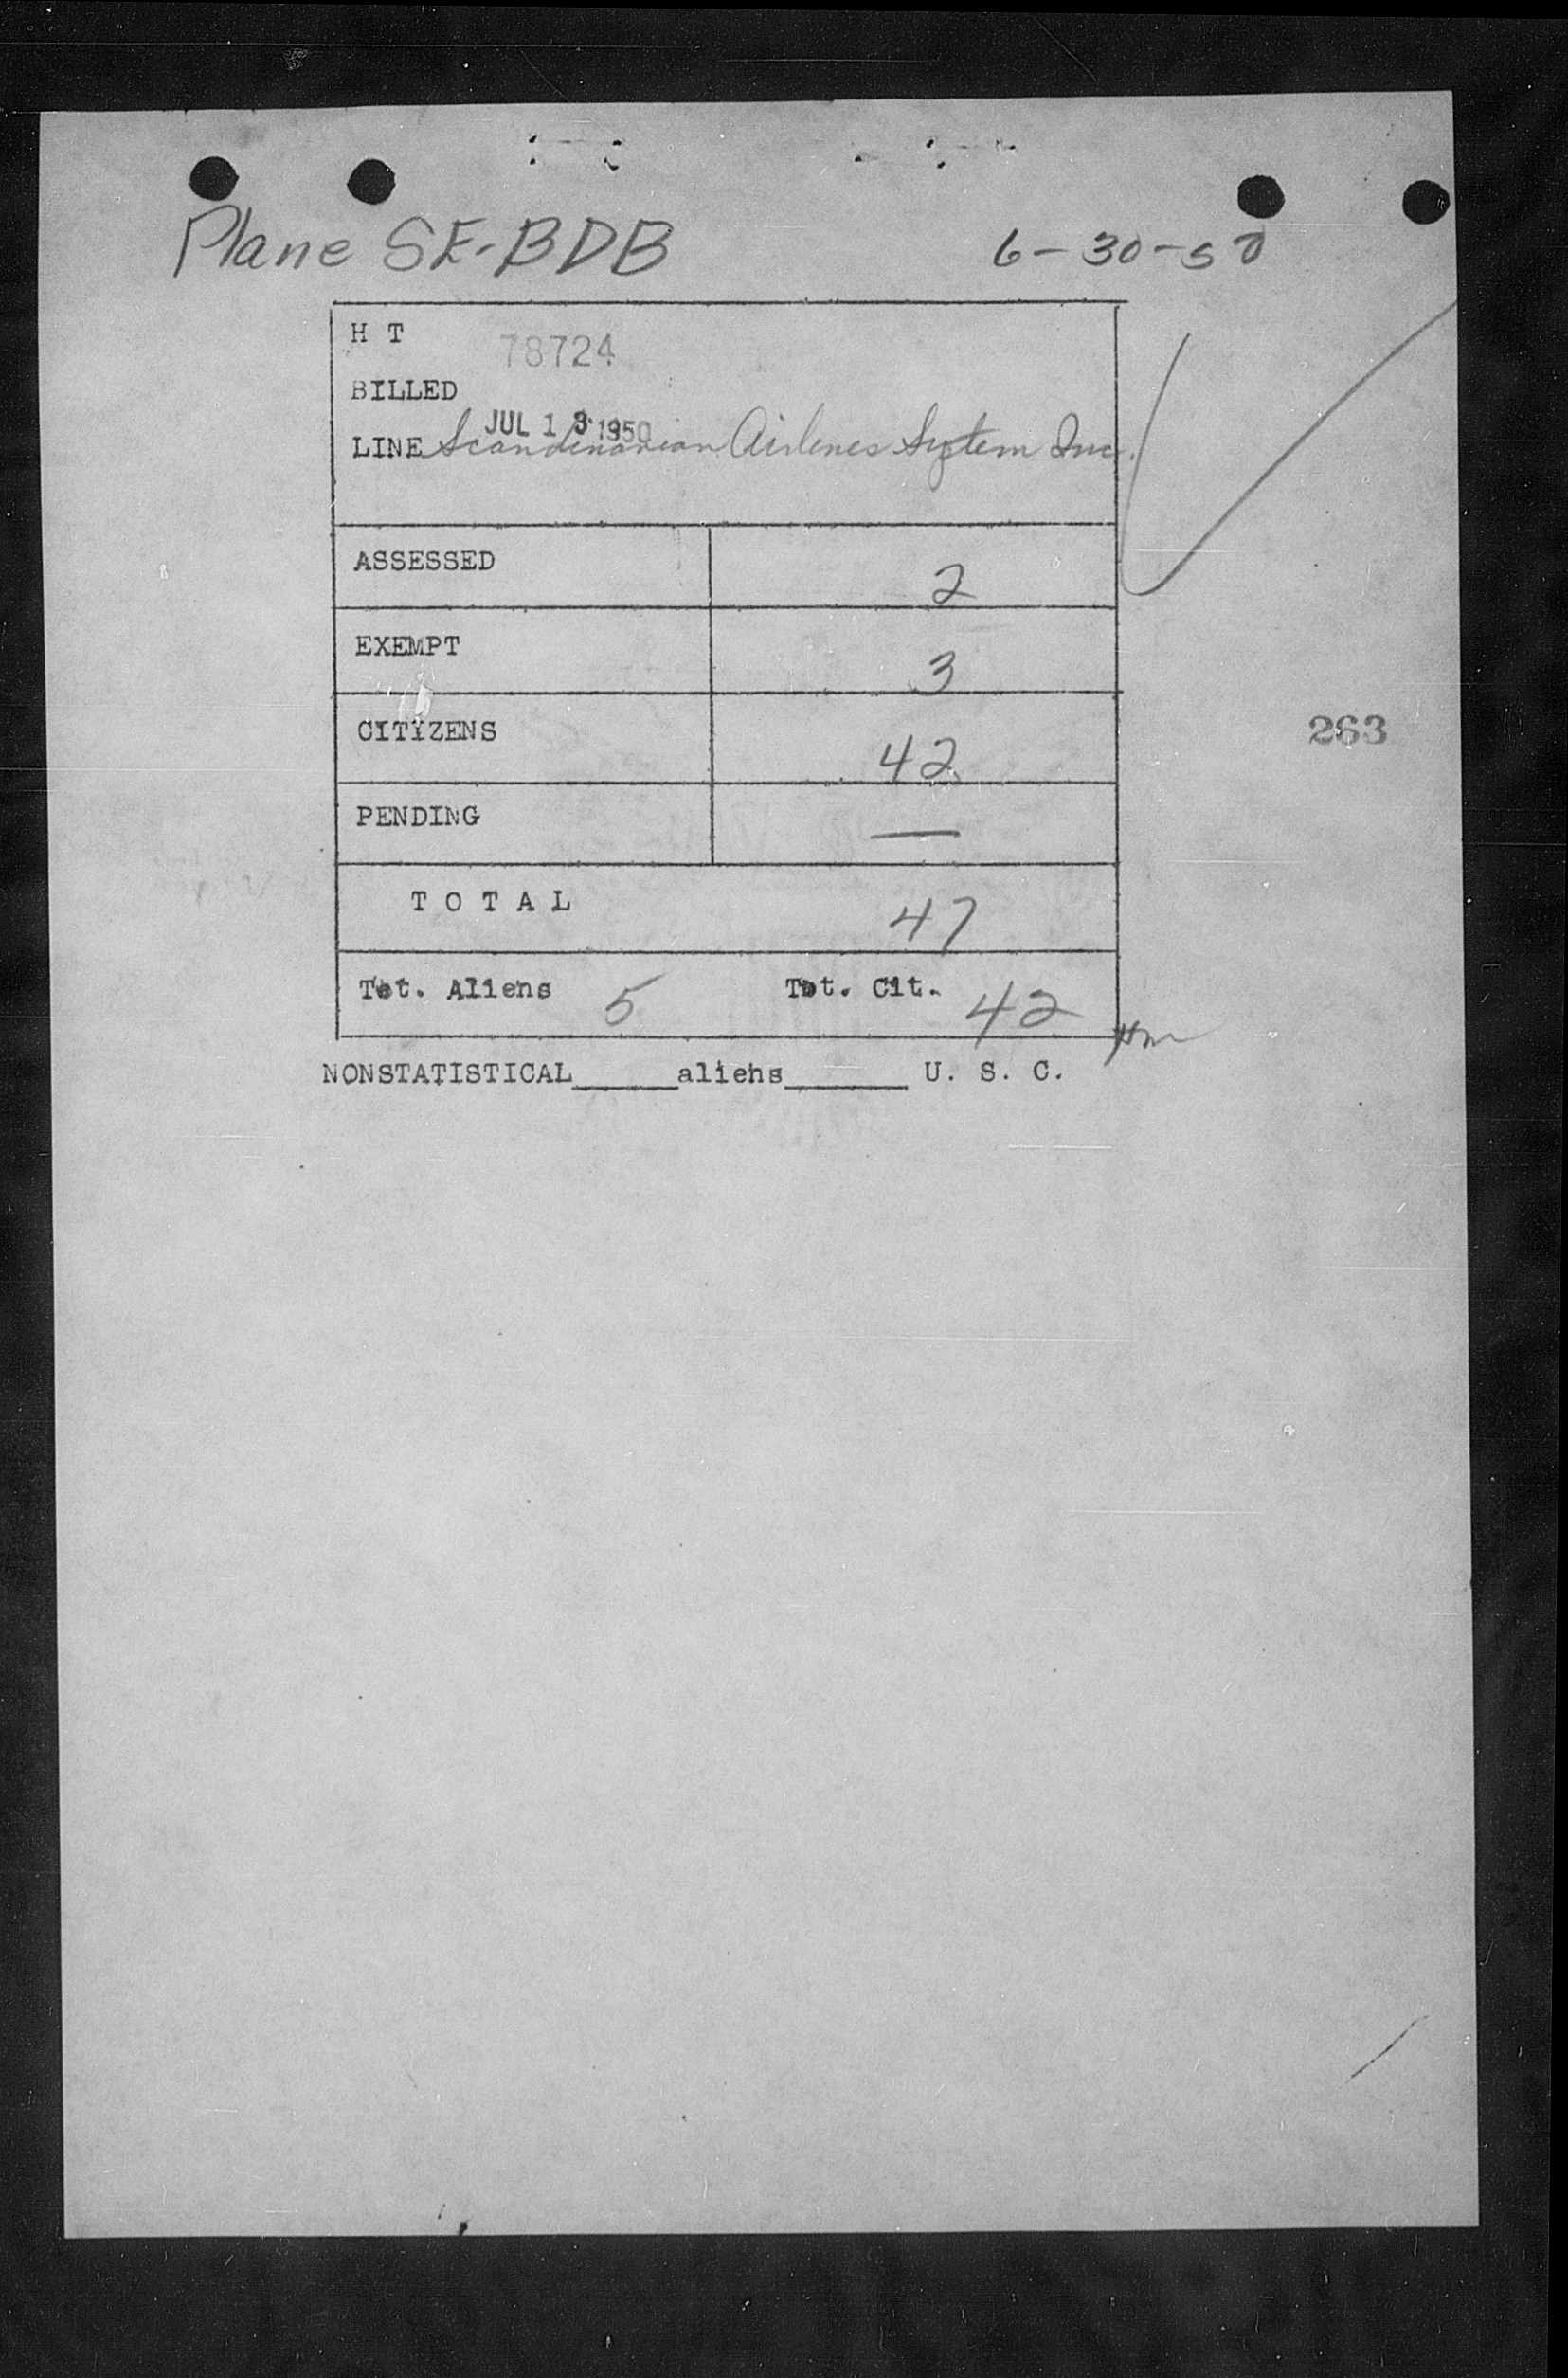 Plane SE-BDB 6-30-50
H T 78724
BILLED
JUL 13 1950
LINE Scandinavian Airlines System Inc.
ASSESSED 2
EXEMPT 3
CITIZENS 42
263
PENDING —
T O T A L 47
Tot. Aliens 5 Tot. Cit. 42
NONSTATISTICAL______aliens_______ U. S. C.